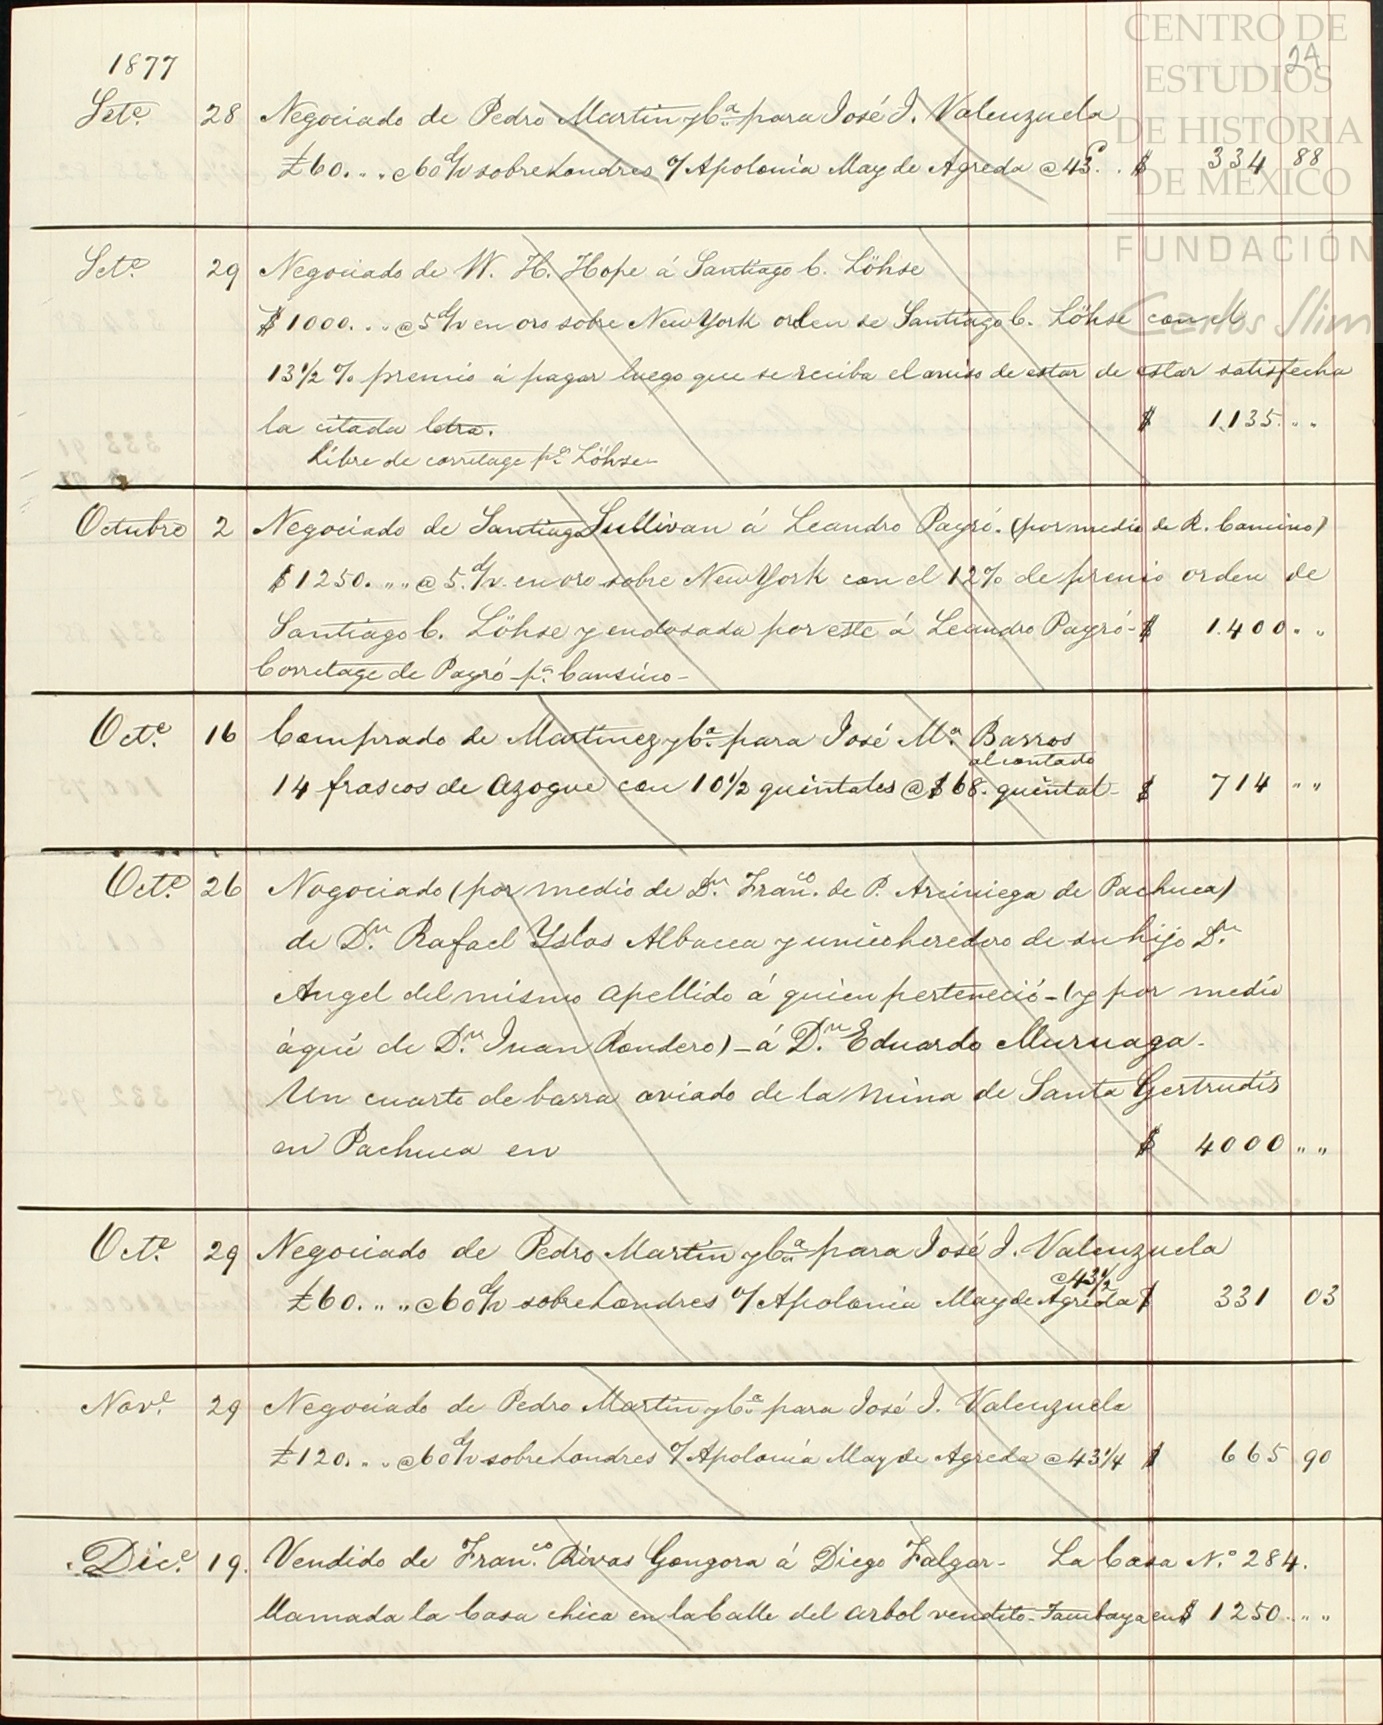 CENTRO DE
ESTUDIOS
DE HISTORIA
DE MÉXICO
FUNDACIÓN
Carlos Slim
24
1877
Sete. 28 Negociado de Pedro Martin y Ca. para José J. Valenzuela
£60. . . @ 60 d/v sobre Londres o/ Apolonia May de Agreda @ 43 . . $ 334 88
Sete. 29 Negociado de W. H. Hope á Santiago C. Löhse
$1000. . . @ 5 d/v en oro sobre New York orden de Santiago C. Löhse con el
13 1/2 % premio á pagar luego que se reciba el aviso de estar de estar satisfecha
la citada letra. $ 1,135 " "
Libre de corretage pr. Löhse
Octubre 2 Negociado de Santiago Sullivan á Leandro Payró. (por medio de R. Cancino)
$1250. " " @ 5. d/v. en oro sobre New York con el 12% de premio orden de
Santiago C. Löhse y endosada por este á Leandro Payró - $ 1.400 " "
Corretage de Payró - pa. Cansino -
Octe. 16 Comprado de Martinez y Ca. para José Ma. Barros
al contado
14 frascos de azogue con 10 1/2 quintales @ $68. quintal - $ 714 " "
Octe. 26 Nogociado (por medio de Dn. Franco. de P. Arciniega de Pachuca)
de Dn. Rafael Yslas Albacea y unico heredero de su hijo Dn.
Angel del mismo apellido á quien perteneció - (y por medio
áquí de Dn. Juan Rondero) - á Dn. Eduardo Muruaga -
Un cuarto de barra aviado de la Mina de Santa Gertrudis
en Pachuca en $ 4000 " "
Octe. 29 Negociado de Pedro Martin y Ca. para José J. Valenzuela
@ 43 1/2
£60. " " @ 60 d/v sobre Londres o/ Apolonia May de Agreda $ 331 03
Nove. 29 Negociado de Pedro Martin y Ca. para José J. Valenzuela
£120. . . @ 60 d/v sobre Londres o/ Apolonia May de Agreda @ 43 1/4 $ 665 90
Dice. 19. Vendido de Franco. Rivas Gongora á Diego Falgar - La Casa No. 284.
llamada la Casa chica en la Calle del arbol vendito - Tacubaya en $ 1250 " "